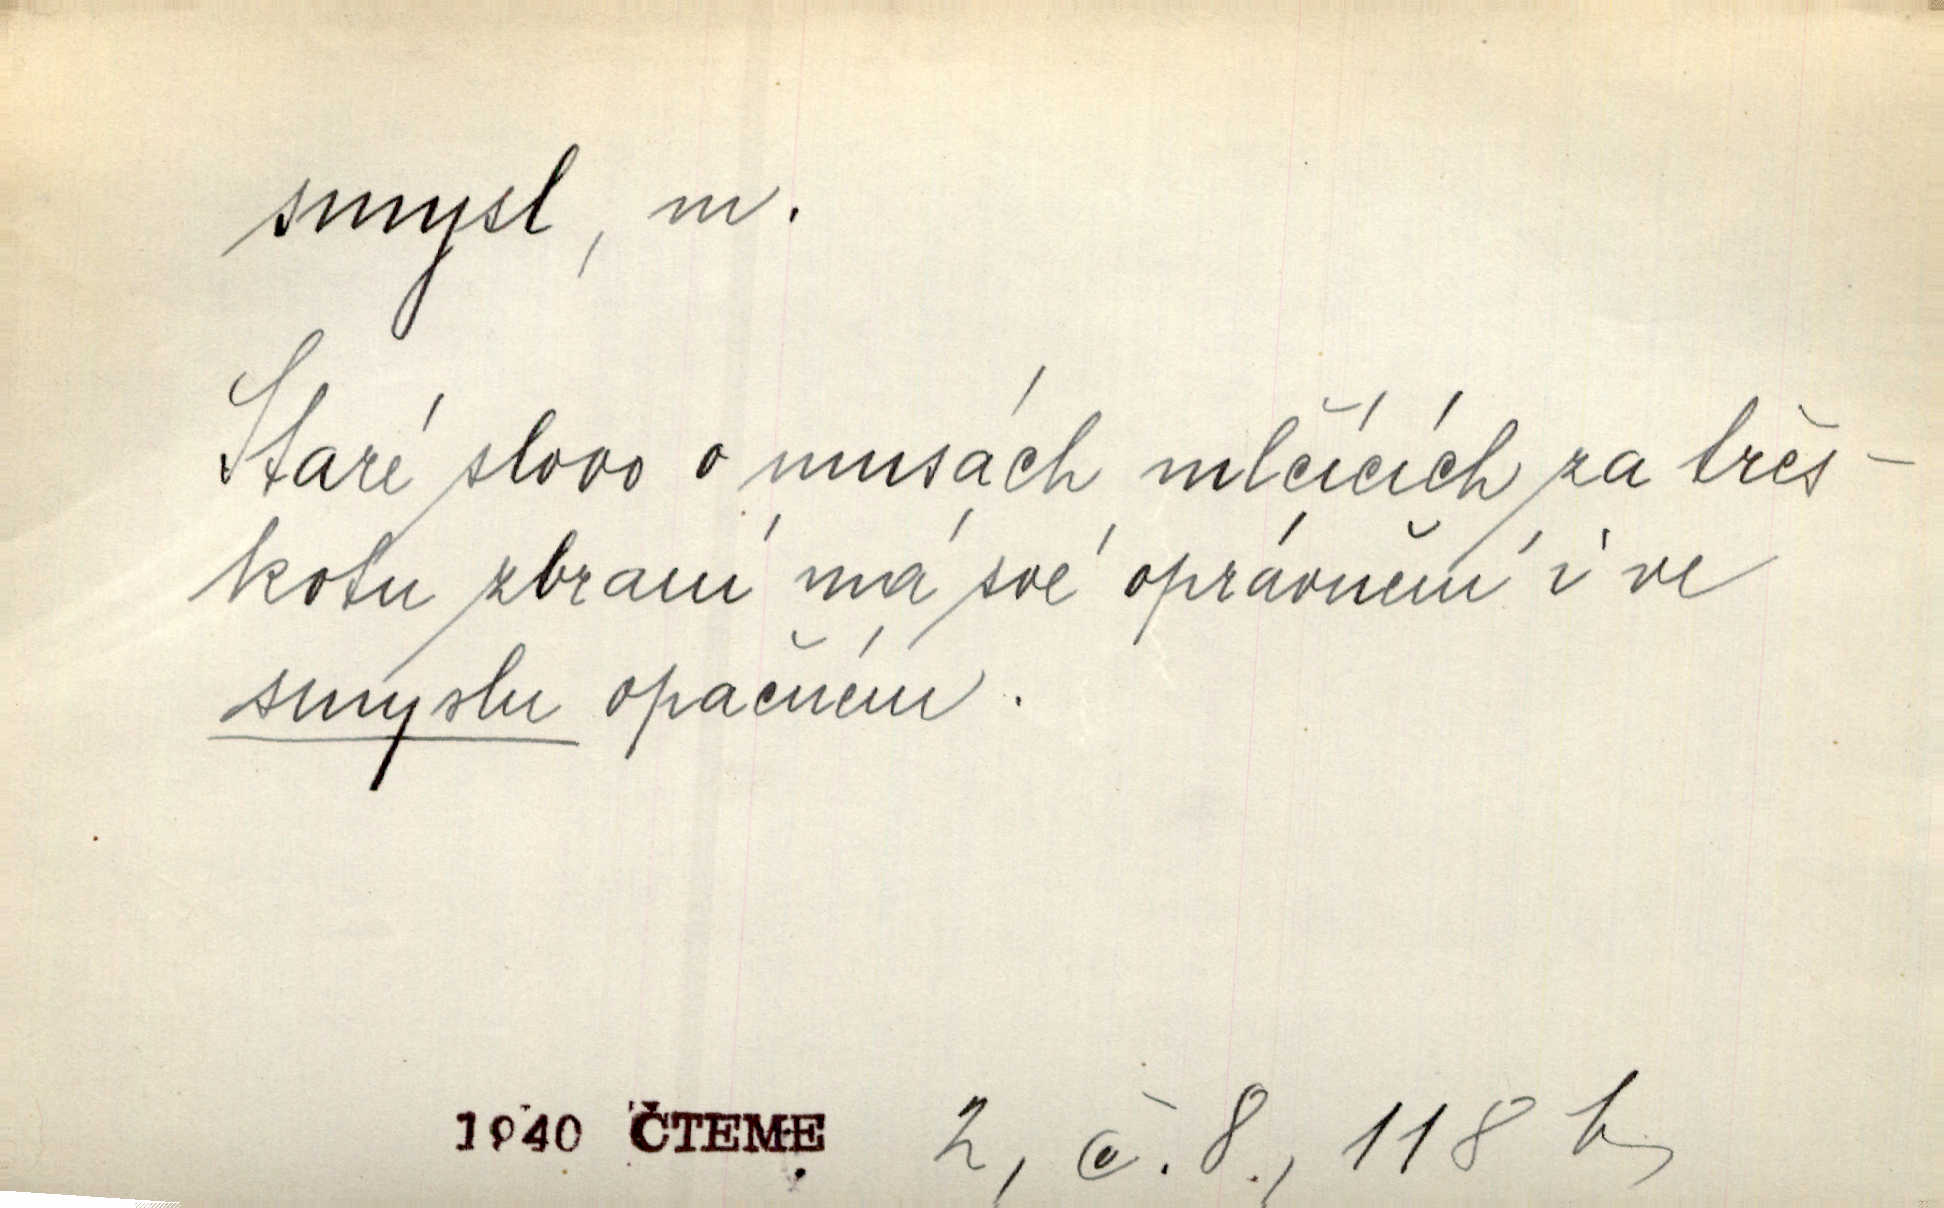 smysl, m.
Staré slovo o musách mlčících za třes-
kotu zbraní má své oprávnění i ve
smyslu opačném.
1940 ČTEME 2, č. 8., 118 b